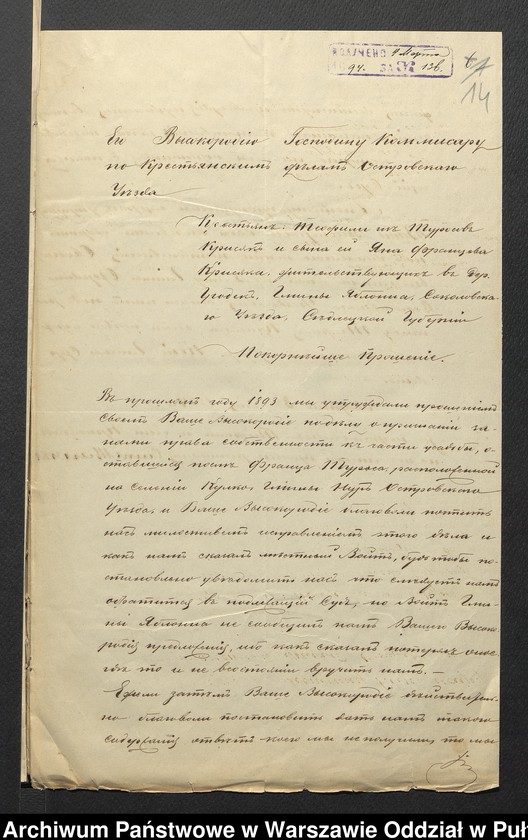 ПОЛУЧЕНО 4 Марта
1894 г. ЗА № 136.
14
Его Высокородію Господину Коммисару
по Крестьянскимъ дѣламъ Островскаго
Уѣзда
Крестьянъ: Теофили изъ Туросовъ
Крысякъ и сына ей Яна Францева
Крысяка, жительствующихъ въ дер.
Гмины Яблонна, Соколовска-
го Уѣзда, Сѣдлецкой Губерніи
Покорнѣйшее Прошеніе.
Въ прошломъ году 1893 мы утруждали прошеніемъ
своимъ Ваше Высокородіе по дѣлу о признаніи за
нами права собственности къ части усадьбы, о-
ставшійся послѣ Франца Туроса, расположенной
на селеніи Гмины Нуръ Островскаго
Уѣзда, и Ваше Высокородіе благоволи почтить
насъ милостивымъ исправленіемъ этого дѣла и
какъ намъ сказалъ мѣстный Войтъ, будьтобы по-
становлено увѣдомить насъ что слѣдуетъ намъ
обратится въ подлежащій Судъ, но Войтъ Гми-
ны Яблонна не сообщилъ намъ Вашего Высоко-
родія предложенія, ибо какъ сказалъ потерялъ оное
гдѣ то и не въ состояніи вручить намъ. —
Ежели затѣмъ Ваше Высокородіе дѣйствитель-
но благоволи постановить дать намъ такого
содержанія отвѣтъ коего мы не получили, то мы
Archiwum Państwowe w Warszawie Oddział w Puł